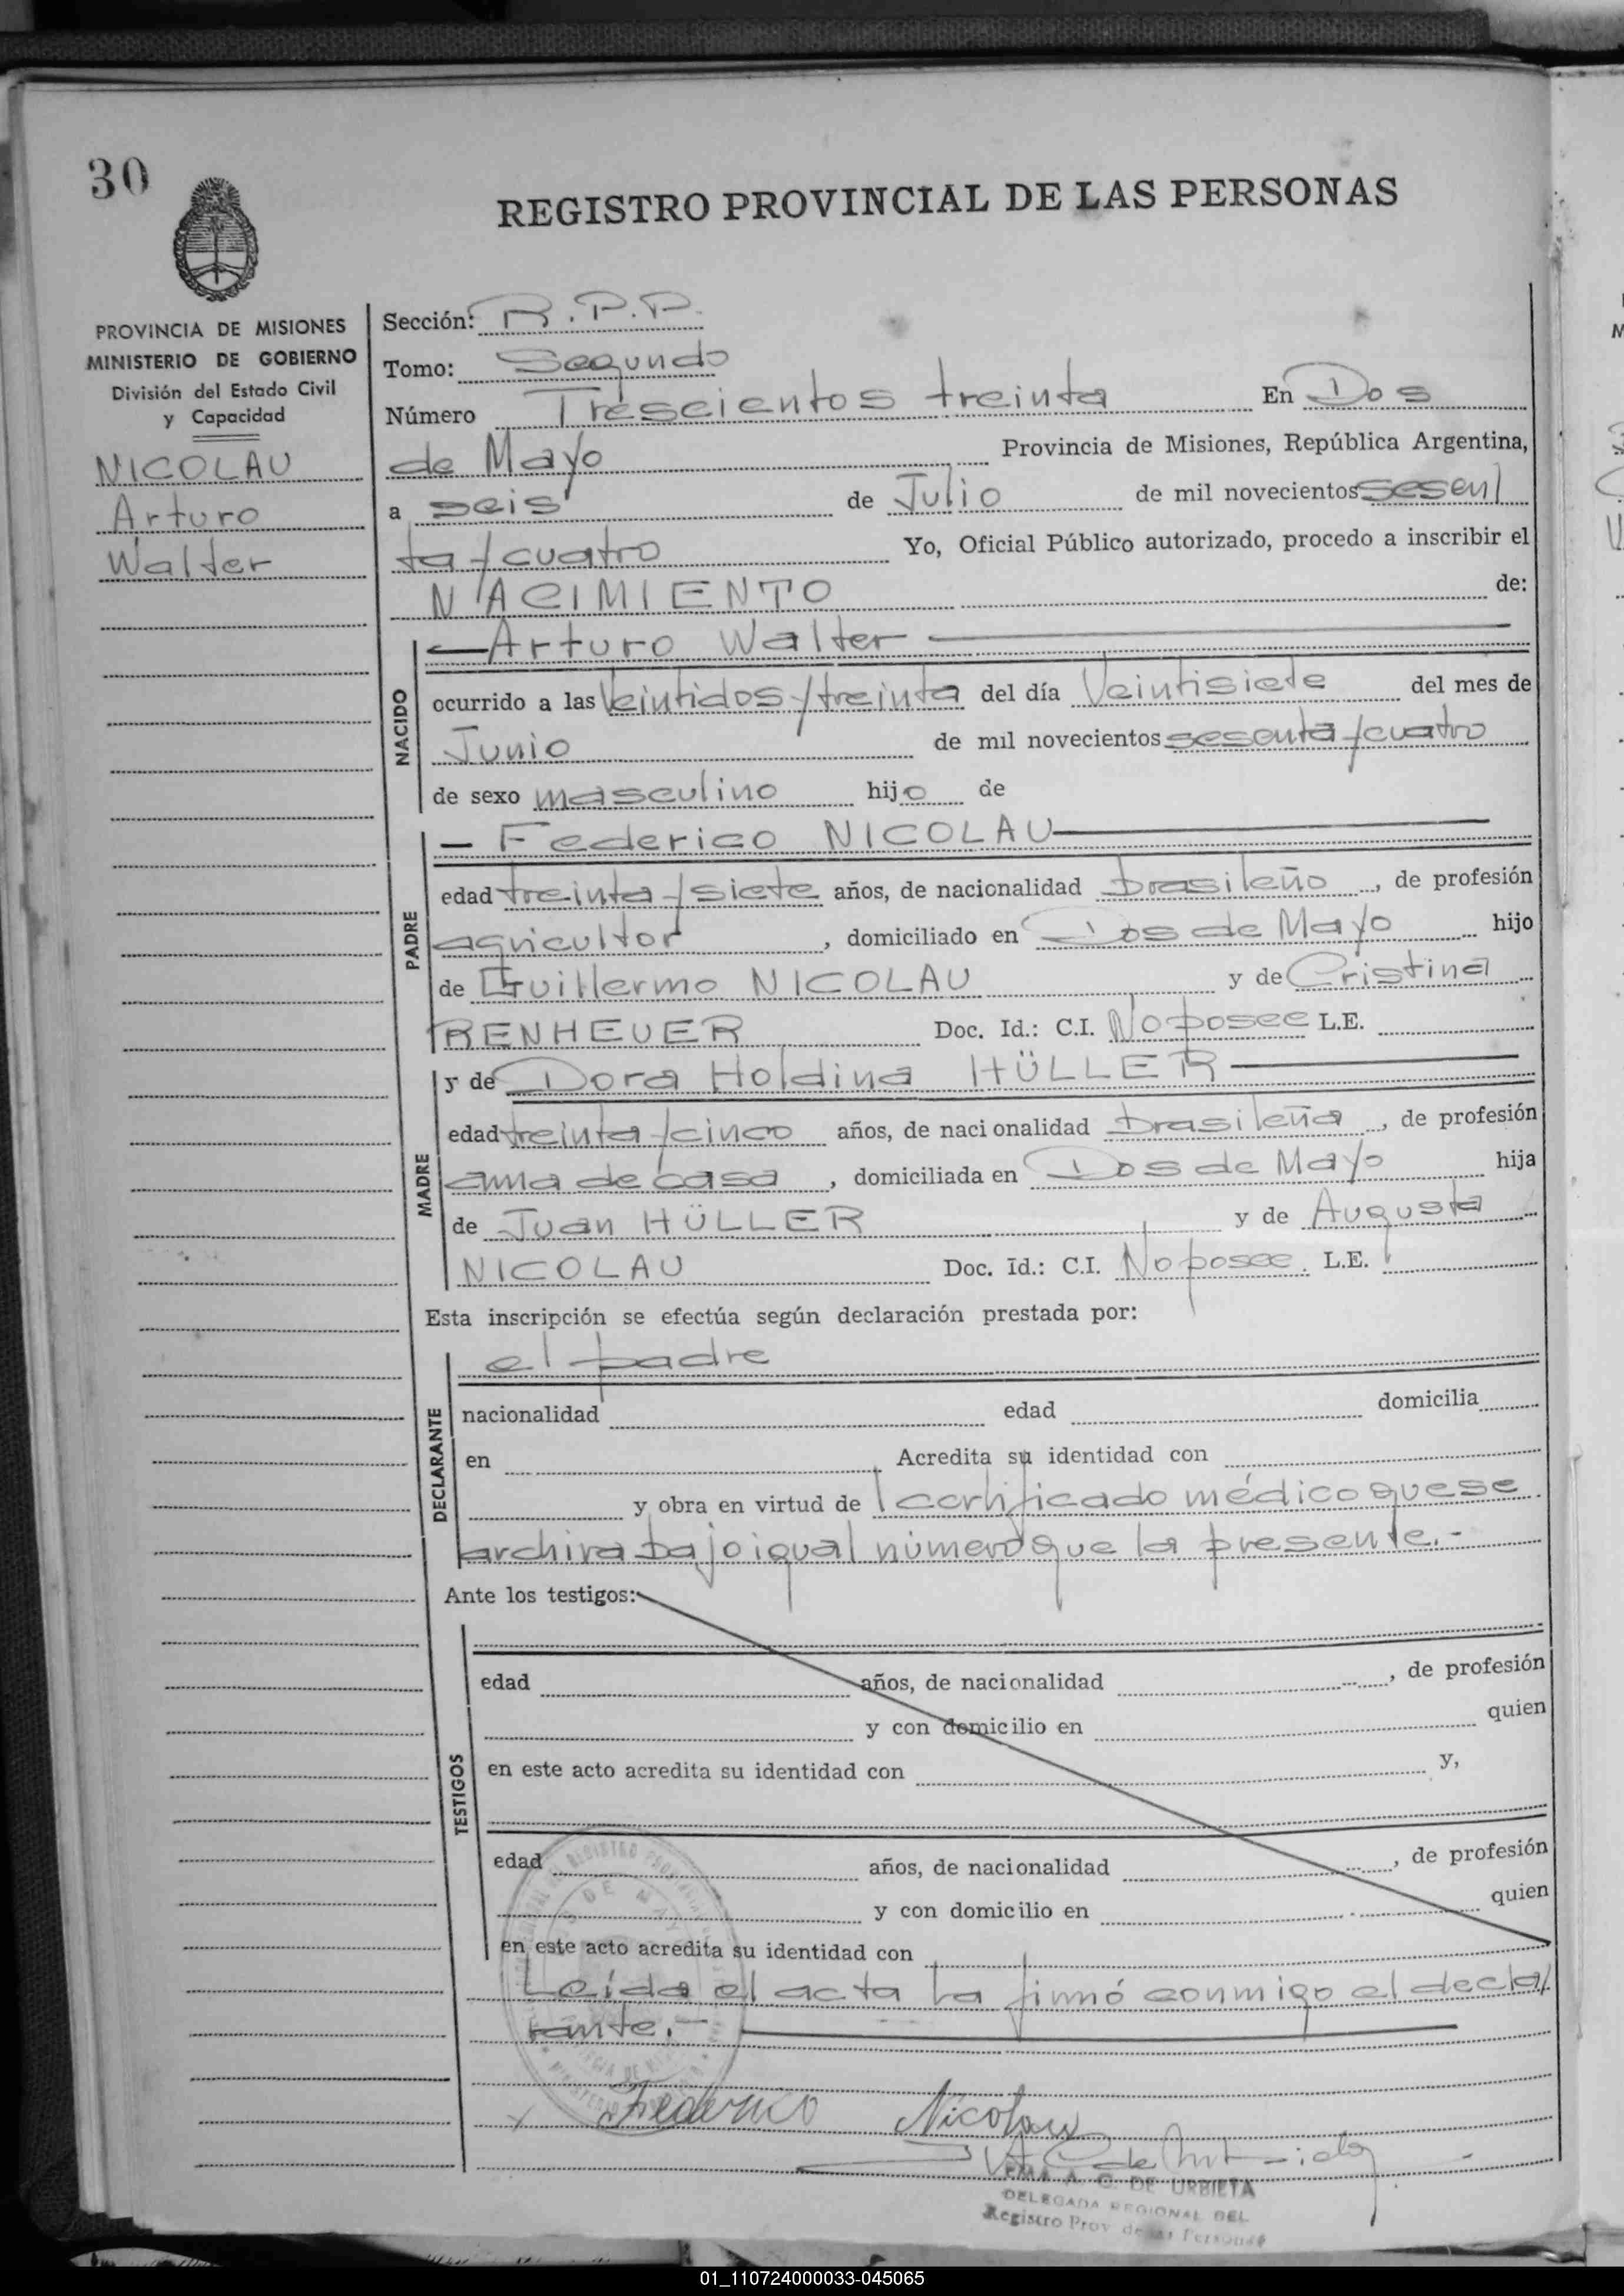 30
REGISTRO PROVINCIAL DE LAS PERSONAS
PROVINCIA DE MISIONES
MINISTERIO DE GOBIERNO
División del Estado Civil
y Capacidad
NICOLAU
Arturo
Walter
Sección: R.P.P.
Tomo: Segundo
Número Trescientos treinta En Dos
de Mayo Provincia de Misiones, República Argentina,
a seis de Julio de mil novecientos sesen/
ta/cuatro Yo, Oficial Público autorizado, procedo a inscribir el
NACIMIENTO de:
NACIDO
— Arturo Walter —
ocurrido a las Veintidos/treinta del día Veintisiete del mes de
Junio de mil novecientos sesenta/cuatro
de sexo masculino hijo de
PADRE
— Federico NICOLAU —
edad treinta/siete años, de nacionalidad brasileño, de profesión
agricultor, domiciliado en Dos de Mayo hijo
de Guillermo NICOLAU y de Cristina
RENHEUER Doc. Id.: C.I. No posee L.E.
MADRE
y de Dora Holdina HÜLLER —
edad treinta/cinco años, de nacionalidad brasileña, de profesión
ama de casa, domiciliada en Dos de Mayo hija
de Juan HÜLLER y de Augusta
NICOLAU Doc. Id.: C.I. No posee. L.E.
Esta inscripción se efectúa según declaración prestada por:
DECLARANTE
el padre
nacionalidad edad domicilia
en Acredita su identidad con
y obra en virtud de l certificado médico que se
archiva bajo igual número que la presente.-
Ante los testigos:
TESTIGOS
edad años, de nacionalidad , de profesión
y con domicilio en quien
en este acto acredita su identidad con y,
edad años, de nacionalidad , de profesión
y con domicilio en quien
en este acto acredita su identidad con
Leída el acta la firmó conmigo el decla/
rante.-
Federico Nicolau
EMA A. C. DE URBIETA
DELEGADA REGIONAL DEL
Registro Prov de las Personas
01_110724000033-045065